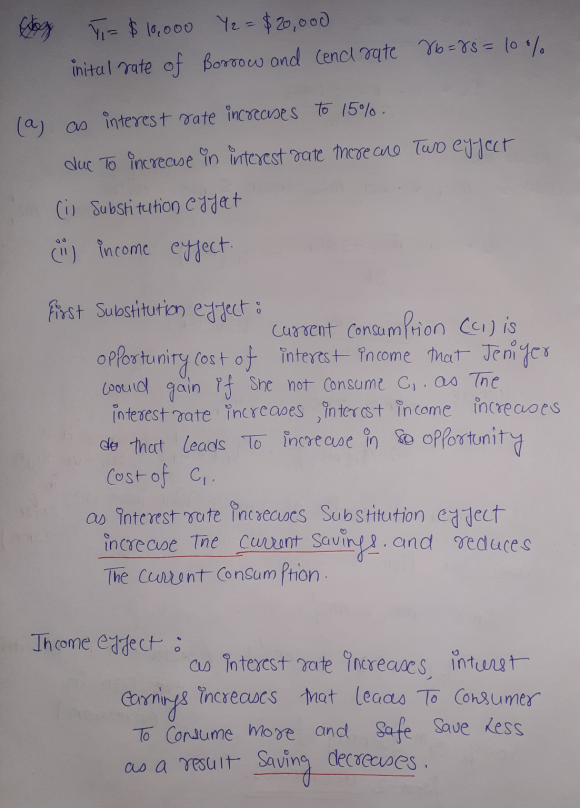 Y̅1 = $ 10,000 Y2 = $ 20,000
inital rate of Borrow and lend rate rb = rs = 10 %
(a) as interest rate increases To 15%.
due To increase in interest rate there are Two effect
(i) Substitution effect
(ii) income effect.
First Substitution effect :
Current Consumption (C1) is
opportunity cost of interest income that Jenifer
would gain if She not Consume C1. as The
interest rate increases, interest income increases
that leads To increase in opportunity
Cost of C1.
as interest rate increases Substitution effect
increase The Current Savings. and reduces
The Current Consumption.
Income effect :
as interest rate increases, interest
earnings increases that leads To Consumer
To Consume more and safe Save Less
as a result Saving decreases.